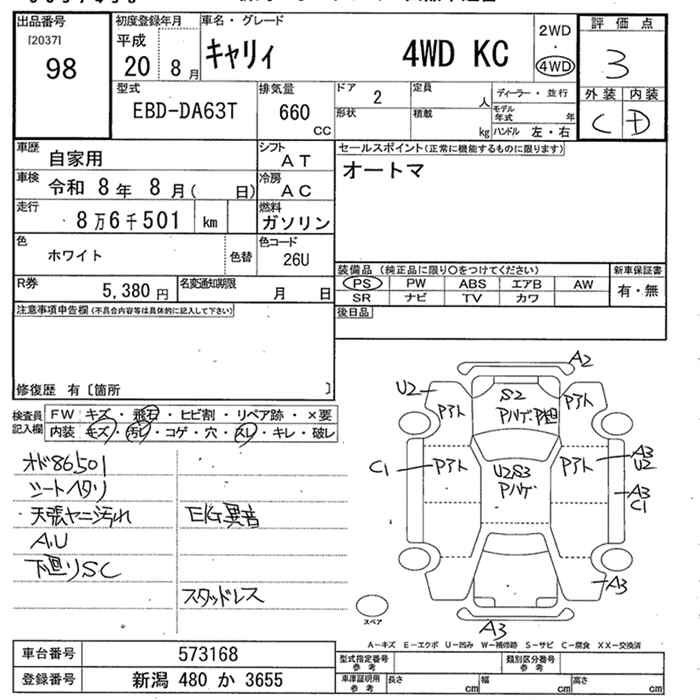 出品番号
[2037]
98
初度登録年月
平成
20 8月
車名・グレード
キャリィ 4WD KC
2WD
・
4WD
評価点
3
外装 内装
C D
型式
EBD-DA63T
排気量
660
CC
ドア
2
形状
定員
人
積載
kg
ディーラー・並行
モデル年式 年
ハンドル 左・右
車歴
自家用
シフト
AT
車検
令和 8年 8月( 日)
冷房
AC
走行
8万6千501 km
燃料
ガソリン
色
ホワイト
色替
色コード
26U
R券
5,380円
名変通知期限
月 日
セールスポイント(正常に機能するものに限ります)
オートマ
装備品 (純正品に限り〇をつけてください)
PS PW ABS エアB AW
SR ナビ TV カワ
新車保証書
有・無
後日品
注意事項申告欄(不具合内容等は具体的に記入して下さい)
修復歴 有〔箇所 〕
検査員記入欄
FW キズ・飛石・ヒビ割・リペア跡・×要
内装 キズ・汚レ・コゲ・穴・スレ・キレ・破レ
オド86501
シートヘタリ
天張ヤニ汚れ
A,U
下廻りSC
E/G異音
スタッドレス
A2
U2
Pアト
S2
Pハゲ・P粗
Pアト
C1
Pアト
U2S3
Pハゲ
Pアト
A3
U2
A3
C1
A3
A3
スペア
A-キズ E-エクボ U-凹み W-補修跡 S-サビ C-腐食 XX-交換済
車台番号 573168
登録番号 新潟 480 か 3655
型式指定番号
参考
類別区分番号
参考
車庫証明用
参考
長さ cm
幅 cm
高さ cm